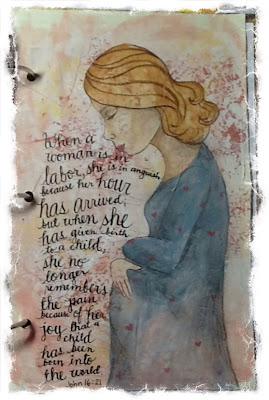 When a
woman is in
labor, she is in anguish,
because her hour
has arrived,
but when she
has given birth
to a child,
she no
longer
remembers
the pain
because of her
joy that a
child
has been
born into
the world.
John 16-21